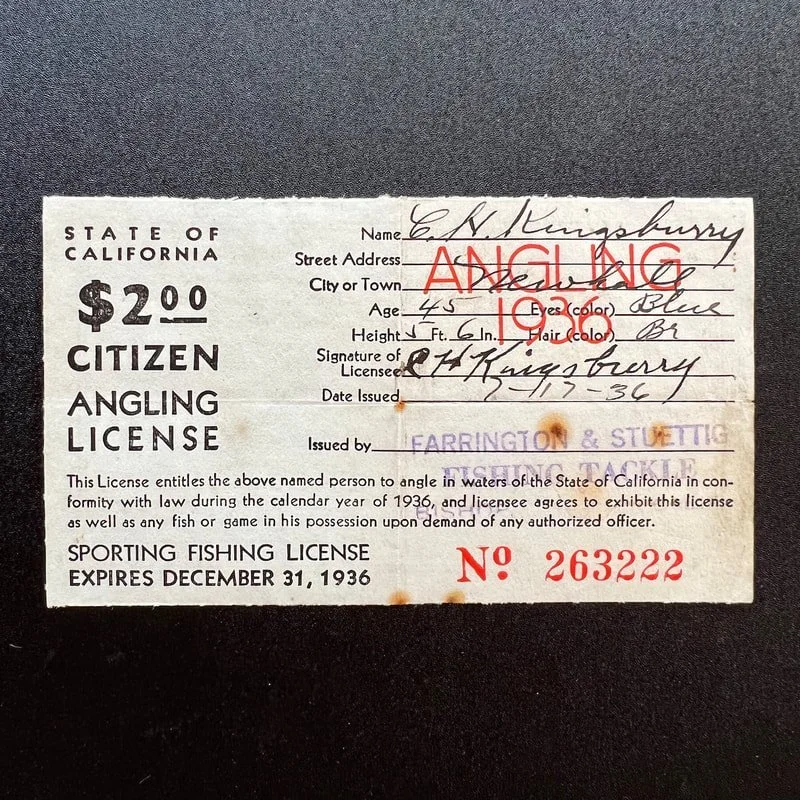 STATE OF
CALIFORNIA
$2.00
CITIZEN
ANGLING
LICENSE
Name C. H. Kingsburry
Street Address
City or Town Newhall
ANGLING
1936
Age 45 Eyes (color) Blue
Height 5 Ft. 6 In. Hair (color) Br
Signature of
Licensee C H Kingsburry
Date Issued 7-17-36
Issued by FARRINGTON & STUETTIG
FISHING TACKLE
This License entitles the above named person to angle in waters of the State of California in con-
formity with law during the calendar year of 1936, and licensee agrees to exhibit this license
as well as any fish or game in his possession upon demand of any authorized officer.
SPORTING FISHING LICENSE
EXPIRES DECEMBER 31, 1936
Nº 263222